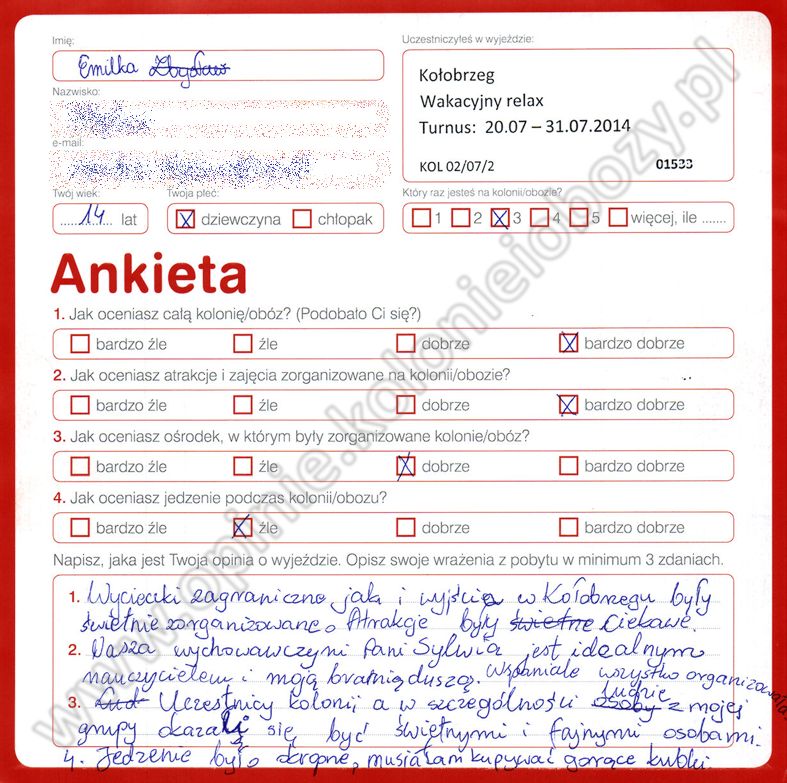 Imię:
Uczestniczyłeś w wyjeździe:
Emilka
Kołobrzeg
Wakacyjny relax
Turnus: 20.07 – 31.07.2014
KOL 02/07/2
01533
Nazwisko:
e-mail:
Twój wiek:
Twoja płeć:
Który raz jesteś na kolonii/obozie?
14 lat
dziewczyna
chłopak
1 2 3 4 5 więcej, ile .......
Ankieta
1. Jak oceniasz całą kolonię/obóz? (Podobało Ci się?)
bardzo źle źle dobrze bardzo dobrze
2. Jak oceniasz atrakcje i zajęcia zorganizowane na kolonii/obozie?
bardzo źle źle dobrze bardzo dobrze
3. Jak oceniasz ośrodek, w którym były zorganizowane kolonie/obóz?
bardzo źle źle dobrze bardzo dobrze
4. Jak oceniasz jedzenie podczas kolonii/obozu?
bardzo źle źle dobrze bardzo dobrze
Napisz, jaka jest Twoja opinia o wyjeździe. Opisz swoje wrażenia z pobytu w minimum 3 zdaniach.
1. Wycieczki zagraniczne jak i wyjścia w Kołobrzegu były
świetnie zorganizowane. Atrakcje były świetne ciekawe.
2. Nasza wychowawczyni Pani Sylwia jest idealnym
nauczycielem i moją bratnią duszą. Wspaniale wszystko organizowała.
3. Lud Uczestnicy kolonii a w szczególności osoby ludzie z mojej
grupy okazali się być świętnymi i fajnymi osobami.
4. Jedzenie było okropne, musiałam kupywać gorące kubki.
www.opinie.kolonieiobozy.pl